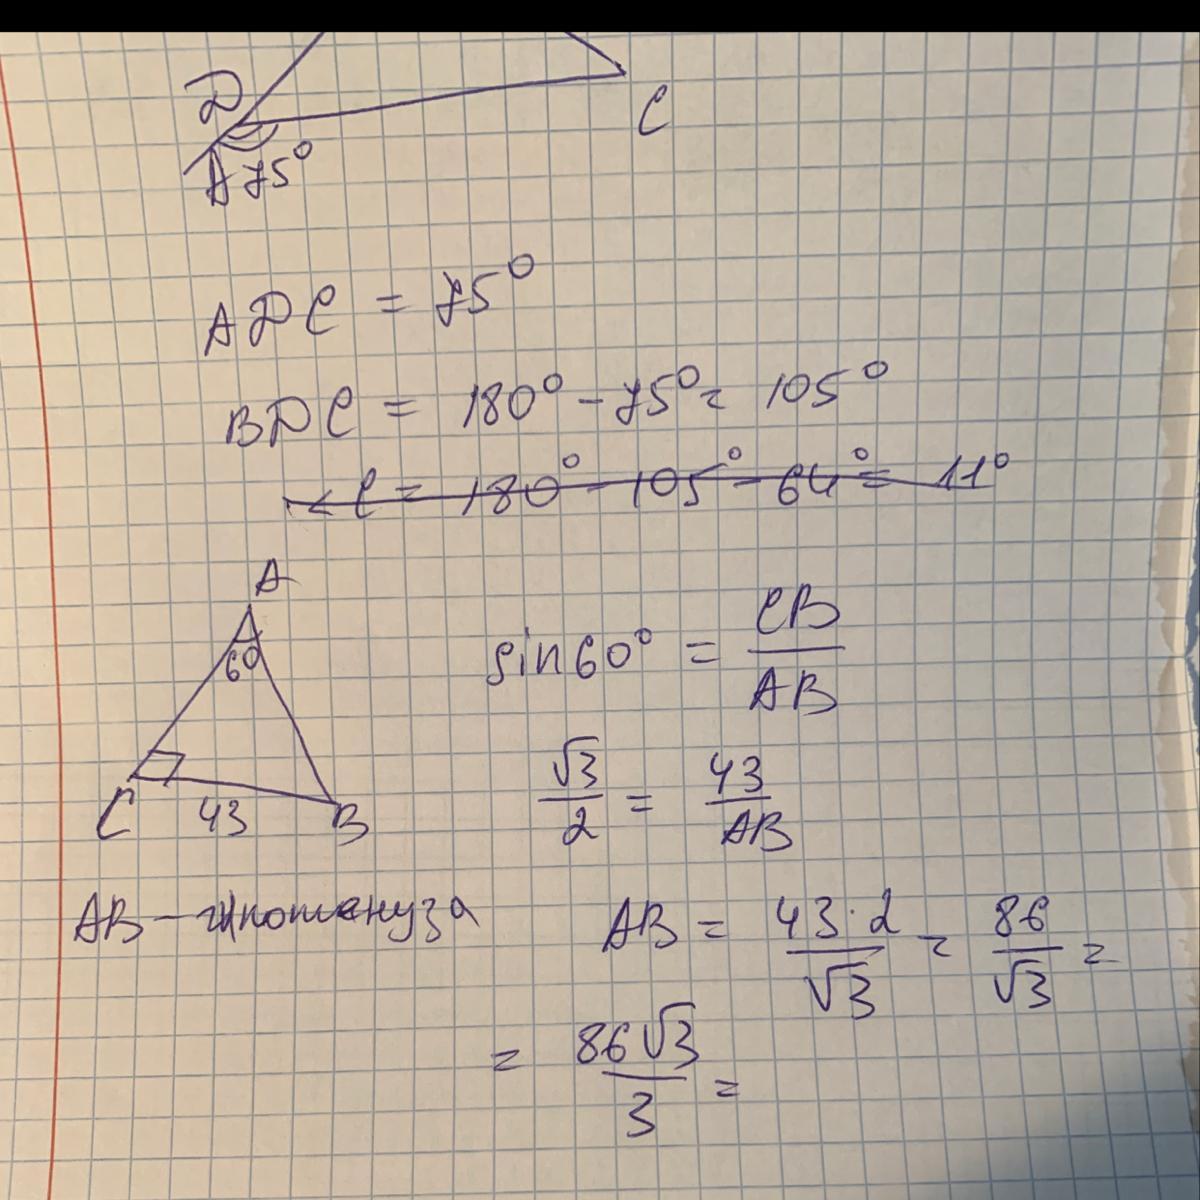 D
C
A 75°
ADC = 75°
BDC = 180° - 75° = 105°
<C = 180° - 105° - 64° = 11°
A
60
C 43 B
sin60° = CB/AB
√3/2 = 43/AB
AB - гипотенуза
AB = 43·2/√3 = 86/√3 =
= 86√3/3 =